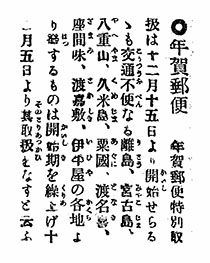 ○年賀郵便　年賀郵便特別取
扱は十二月十五日より開始せらる
ゝも交通不便なる離島、宮古島、
八重山、久米島、粟國、渡名喜、
座間味、渡嘉敷、伊平屋の各地よ
り發するものは開始期を繰上げ十
二月五日より其取扱をなすと云ふ